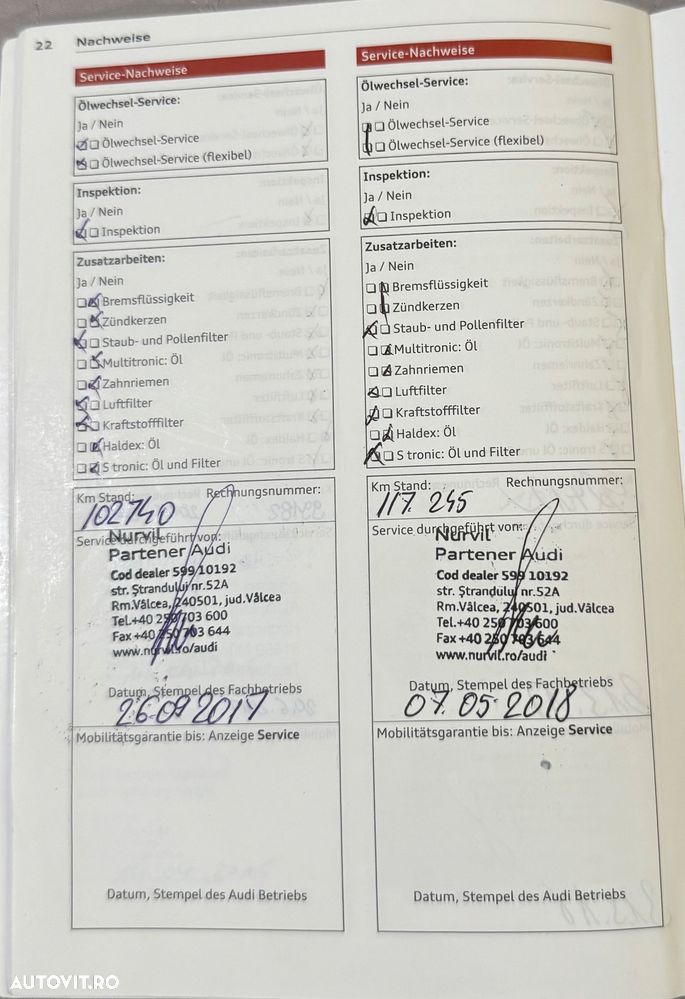 22 Nachweise
Service-Nachweise
Ölwechsel-Service:
Ja / Nein
Ölwechsel-Service
Ölwechsel-Service (flexibel)
Inspektion:
Ja / Nein
Inspektion
Zusatzarbeiten:
Ja / Nein
Bremsflüssigkeit
Zündkerzen
Staub- und Pollenfilter
Multitronic: Öl
Zahnriemen
Luftfilter
Kraftstofffilter
Haldex: Öl
S tronic: Öl und Filter
Km Stand: Rechnungsnummer:
102740
Service durchgeführt von:
Nurvil
Partener Audi
Cod dealer 599 10192
str. Ștrandului nr.52A
Rm.Vâlcea, 240501, jud.Vâlcea
Tel.+40 250 703 600
Fax +40 250 703 644
www.nurvil.ro/audi
Datum, Stempel des Fachbetriebs
26.09 2017
Mobilitätsgarantie bis: Anzeige Service
Datum, Stempel des Audi Betriebs
Service-Nachweise
Ölwechsel-Service:
Ja / Nein
Ölwechsel-Service
Ölwechsel-Service (flexibel)
Inspektion:
Ja / Nein
Inspektion
Zusatzarbeiten:
Ja / Nein
Bremsflüssigkeit
Zündkerzen
Staub- und Pollenfilter
Multitronic: Öl
Zahnriemen
Luftfilter
Kraftstofffilter
Haldex: Öl
S tronic: Öl und Filter
Km Stand: Rechnungsnummer:
117. 245
Service durchgeführt von:
Nurvil
Partener Audi
Cod dealer 599 10192
str. Ștrandului nr.52A
Rm.Vâlcea, 240501, jud.Vâlcea
Tel.+40 250 703 600
Fax +40 250 703 644
www.nurvil.ro/audi
Datum, Stempel des Fachbetriebs
07. 05. 2018
Mobilitätsgarantie bis: Anzeige Service
Datum, Stempel des Audi Betriebs
AUTOVIT.RO